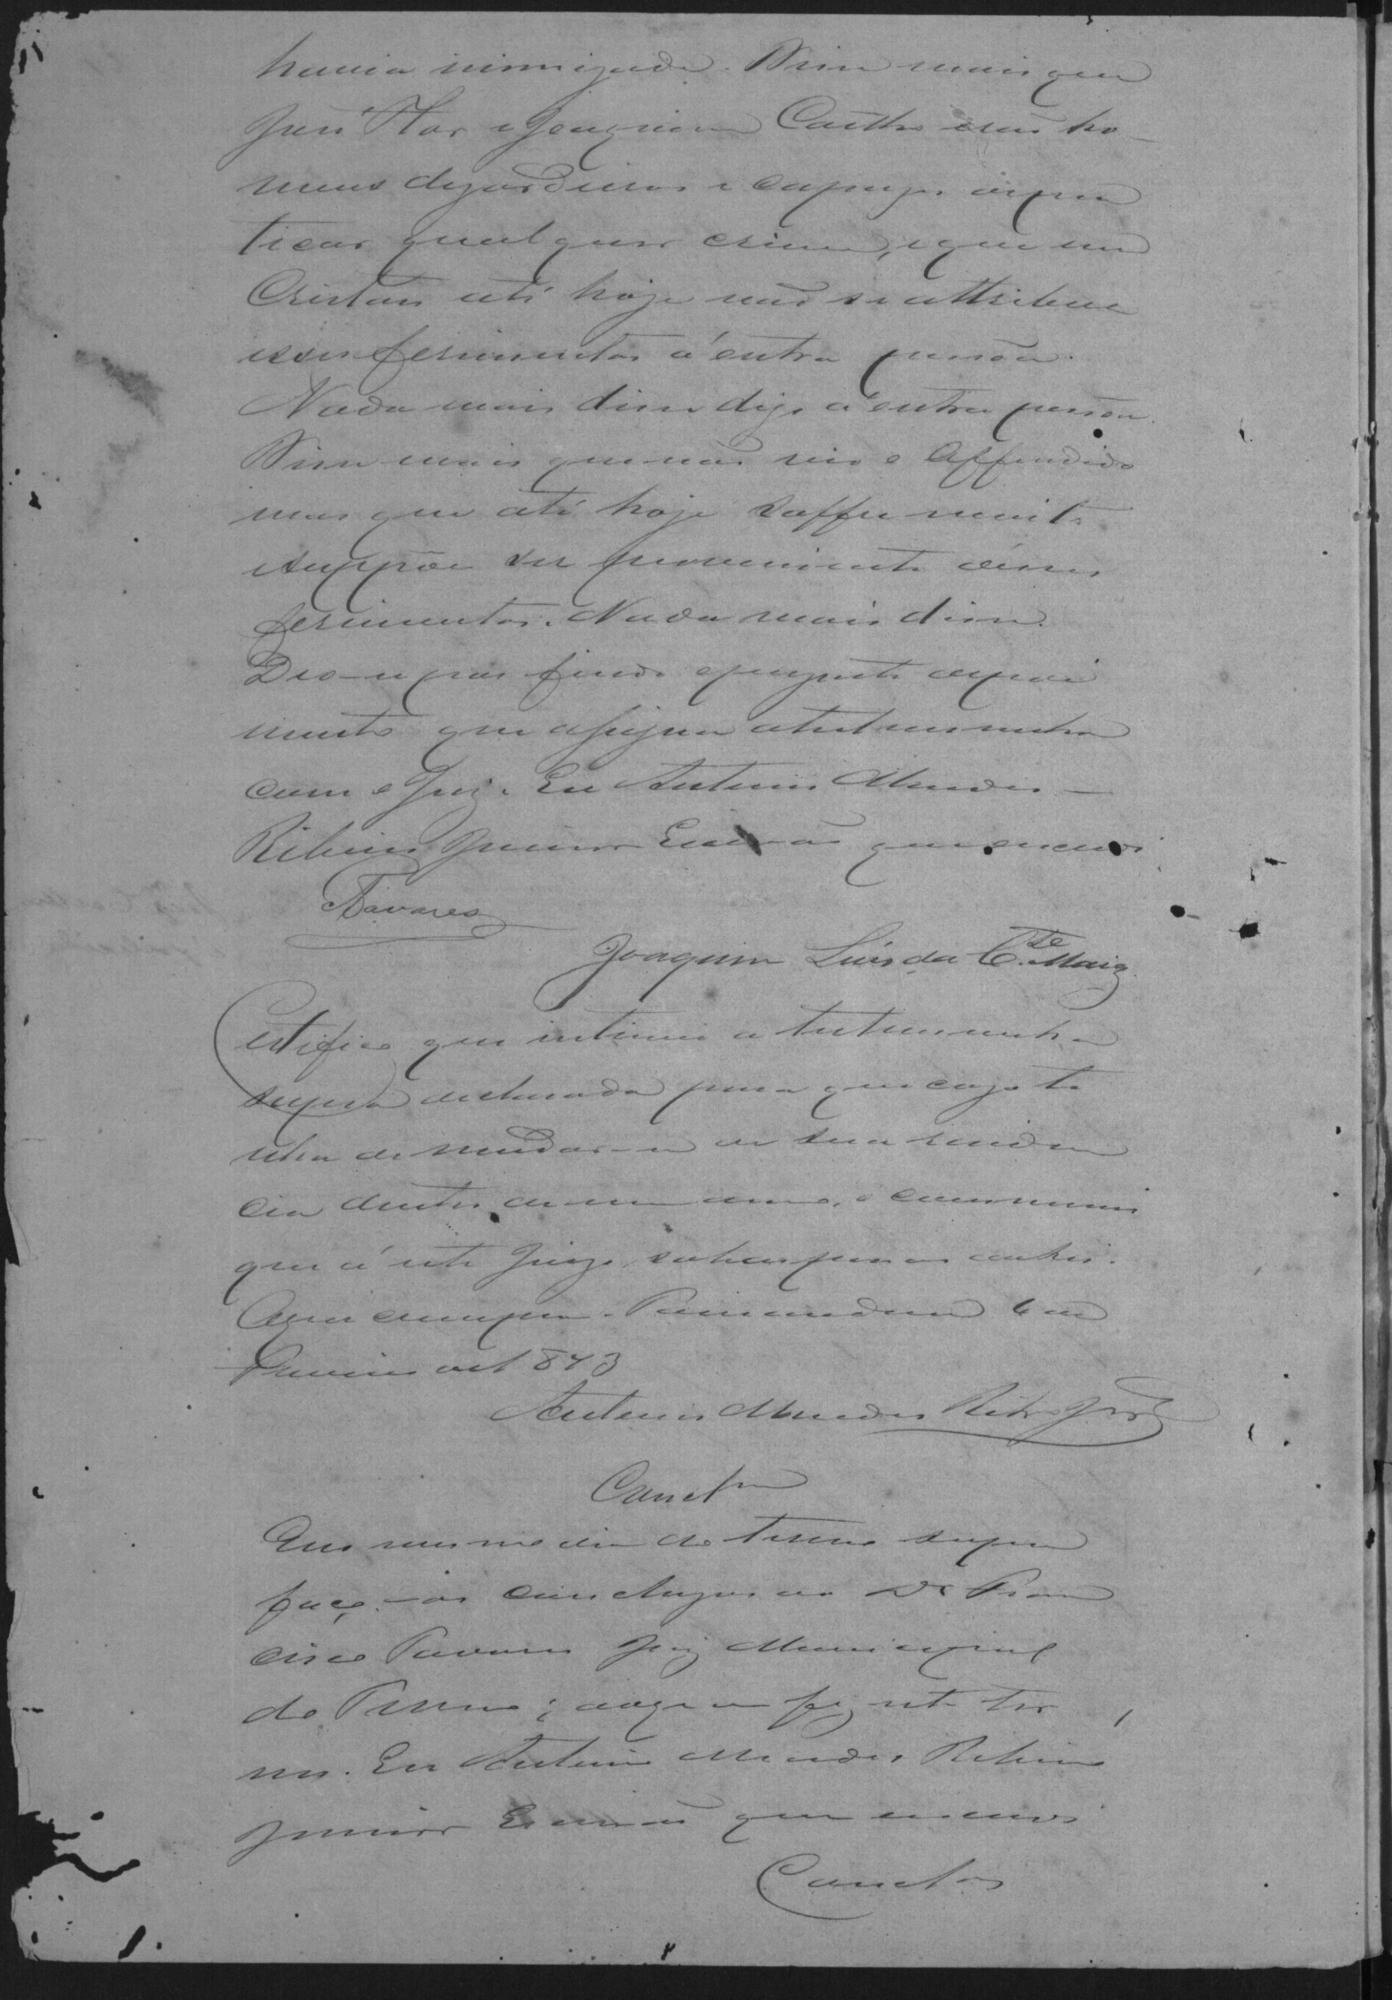 havia inimizade. Disse mais que
José Flor e Joaquim Coêtho são ho-
mens dezordeiros e capazes de pra
ticar qualquer crime, e que em
Cristais até hoje não se attribue
esses ferimentos á outra pessoa.
Nada mais disse digo a outra pessoa.
Disse mais que não viu o Offendido
mas que até hoje soffre muito
e suppõe ser proveniente desses
ferimentos. Nada mais disse.
Deo-se por findo o presente depoi
mento que assigna a testemunha
com o Juiz. Eu Antonio Mendes
Ribeiro Junior Escrivão que escrevi
Tavares
Joaquim Luis da C.te Maia
Certifico que intimei a testemunha
supra declarada para que caso te
nha de mudar-se de sua residen
cia dentro de um anno, o communi
que á este Juizo, sob as penas da lei.
O que cumpra. 6 de
Junio de 1873
Antonio Mendes Ribro Jor
Conclm
Em o mesmo dia do termo supra
faço os conclusos ao Dr Fran
cisco Tavares Juiz Municipal
do Termo; do que fiz este ter
mo. Eu Antonio Mendes Ribeiro
Junior Escrivão que escrevi
Conclos